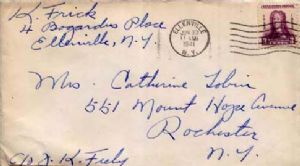 K. Frick
4 Bogardus Place
Ellenville, N.Y.
ELLENVILLE
1941
N.Y.
Mrs. Catherine Tobin
551 Mount Hope Avenue
Rochester
N.Y.
K.